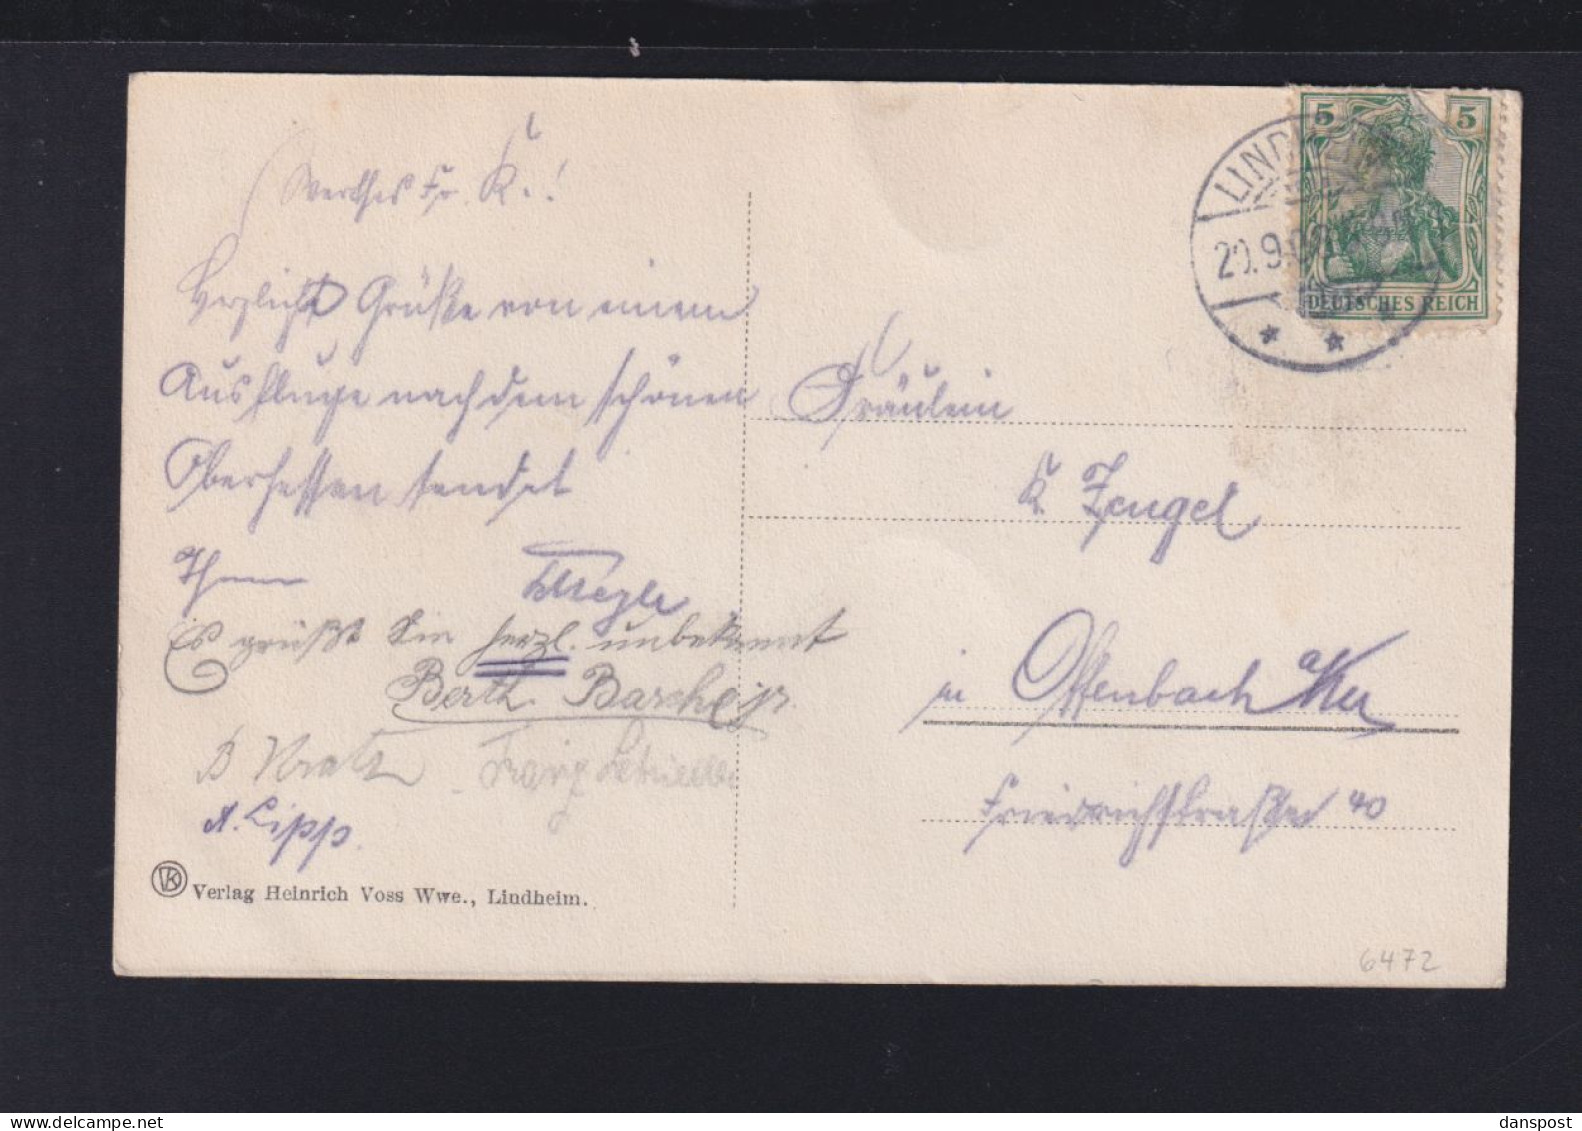 Werthes Frl. K.!
Herzliche Grüße von einem
Ausfluge nach dem schönen
Oberhessen sendet
Ihnen
Es grüßt Sie herzl. unbekannt
Berth.
B Kratz Franz
A. Lipp.
Verlag Heinrich Voss Wwe., Lindheim.
5 5
DEUTSCHES REICH
20.9.
Fräulein
K. Zengel
in Offenbach a/M
Friedrichstraße 40
6472
delcampe.net
danspost